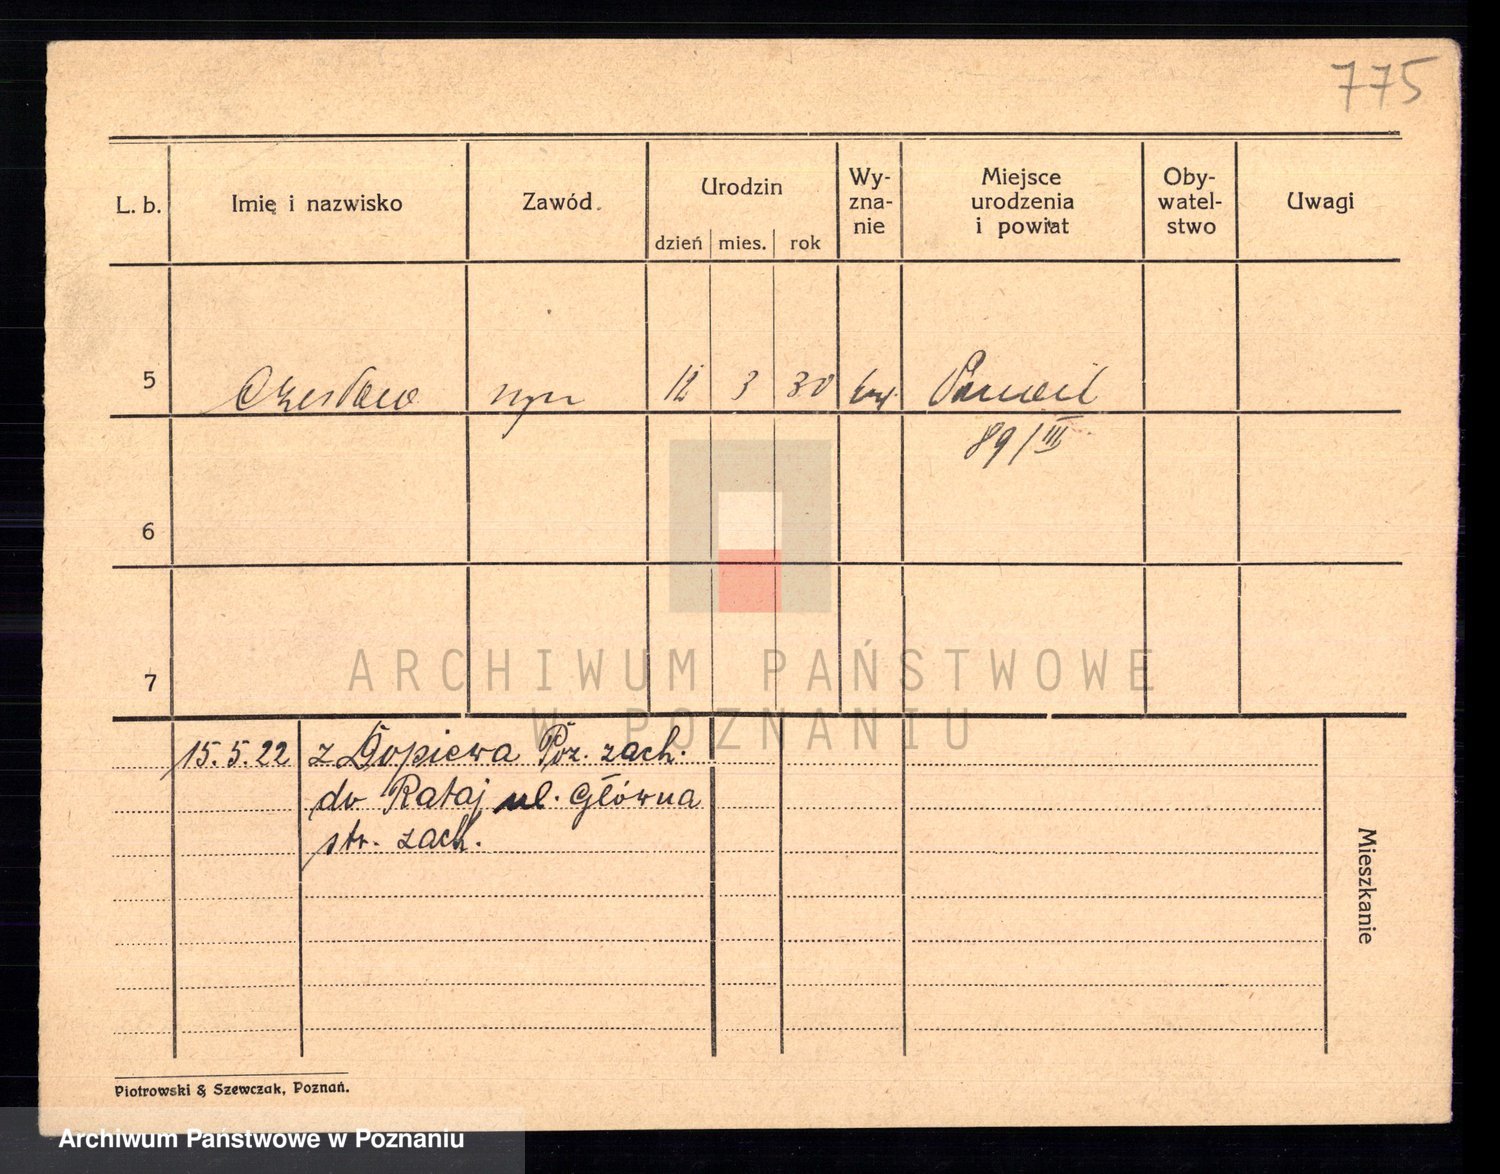 775
L. b.
Imię i nazwisko
Zawód
Urodzin
dzień mies. rok
Wy-
zna-
nie
Miejsce
urodzenia
i powiat
Oby-
watel-
stwo
Uwagi
5 Czesław syn 12 3 30 Poznań
89/III
6
7
ARCHIWUM PAŃSTWOWE
W POZNANIU
15.5.22 z Dopiewa Poz. zach.
do Rataj ul. Główna
str. zach.
Mieszkanie
Piotrowski & Szewczak, Poznań.
Archiwum Państwowe w Poznaniu